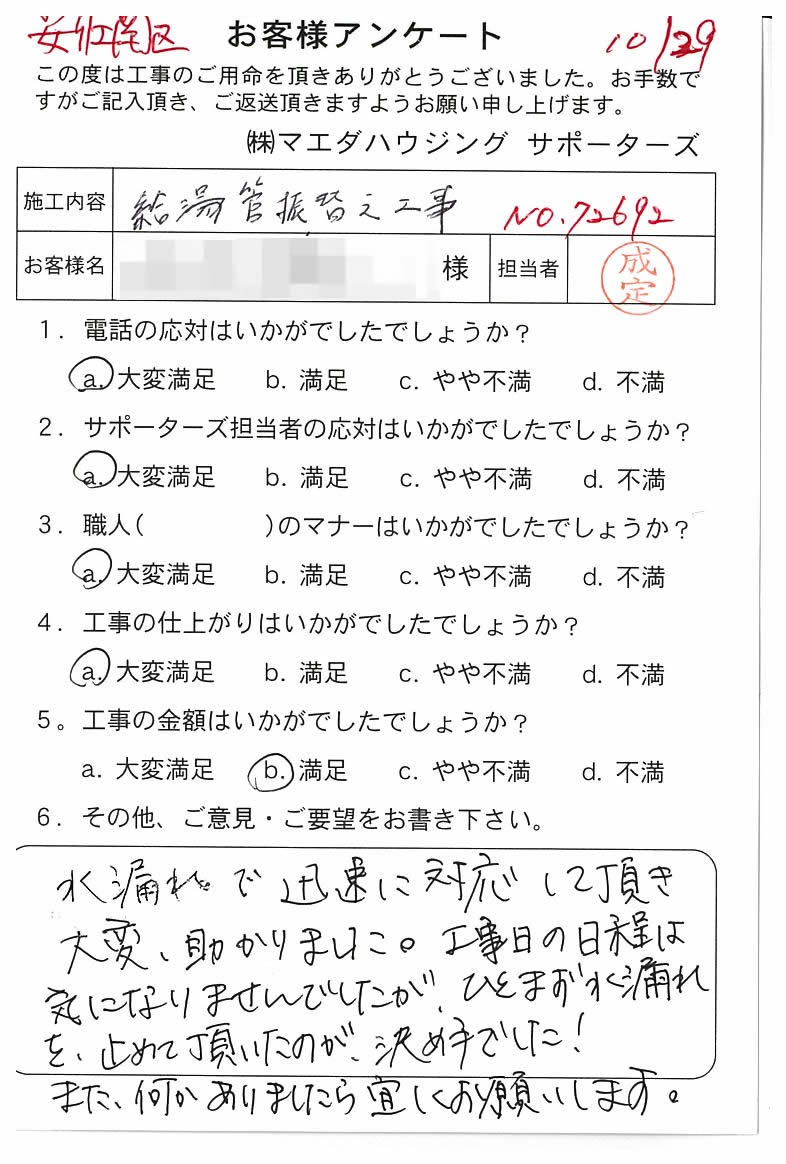 安佐南区 お客様アンケート 10/29
この度は工事のご用命を頂きありがとうございました。お手数で
すがご記入頂き、ご返送頂きますようお願い申し上げます。
㈱マエダハウジング サポーターズ
施工内容 給湯管振替え工事 NO.72692
お客様名 様 担当者 成定
1. 電話の応対はいかがでしたでしょうか?
a. 大変満足 b. 満足 c. やや不満 d. 不満
2. サポーターズ担当者の応対はいかがでしたでしょうか?
a. 大変満足 b. 満足 c. やや不満 d. 不満
3. 職人( )のマナーはいかがでしたでしょうか?
a. 大変満足 b. 満足 c. やや不満 d. 不満
4. 工事の仕上がりはいかがでしたでしょうか?
a. 大変満足 b. 満足 c. やや不満 d. 不満
5。工事の金額はいかがでしたでしょうか?
a. 大変満足 b. 満足 c. やや不満 d. 不満
6. その他、ご意見・ご要望をお書き下さい。
水漏れで迅速に対応して頂き
大変、助かりました。工事日の日程は
気になりませんでしたが、ひとまず水漏れ
を、止めて頂いたのが、決め手でした!
また、何かありましたら宜しくお願いします。